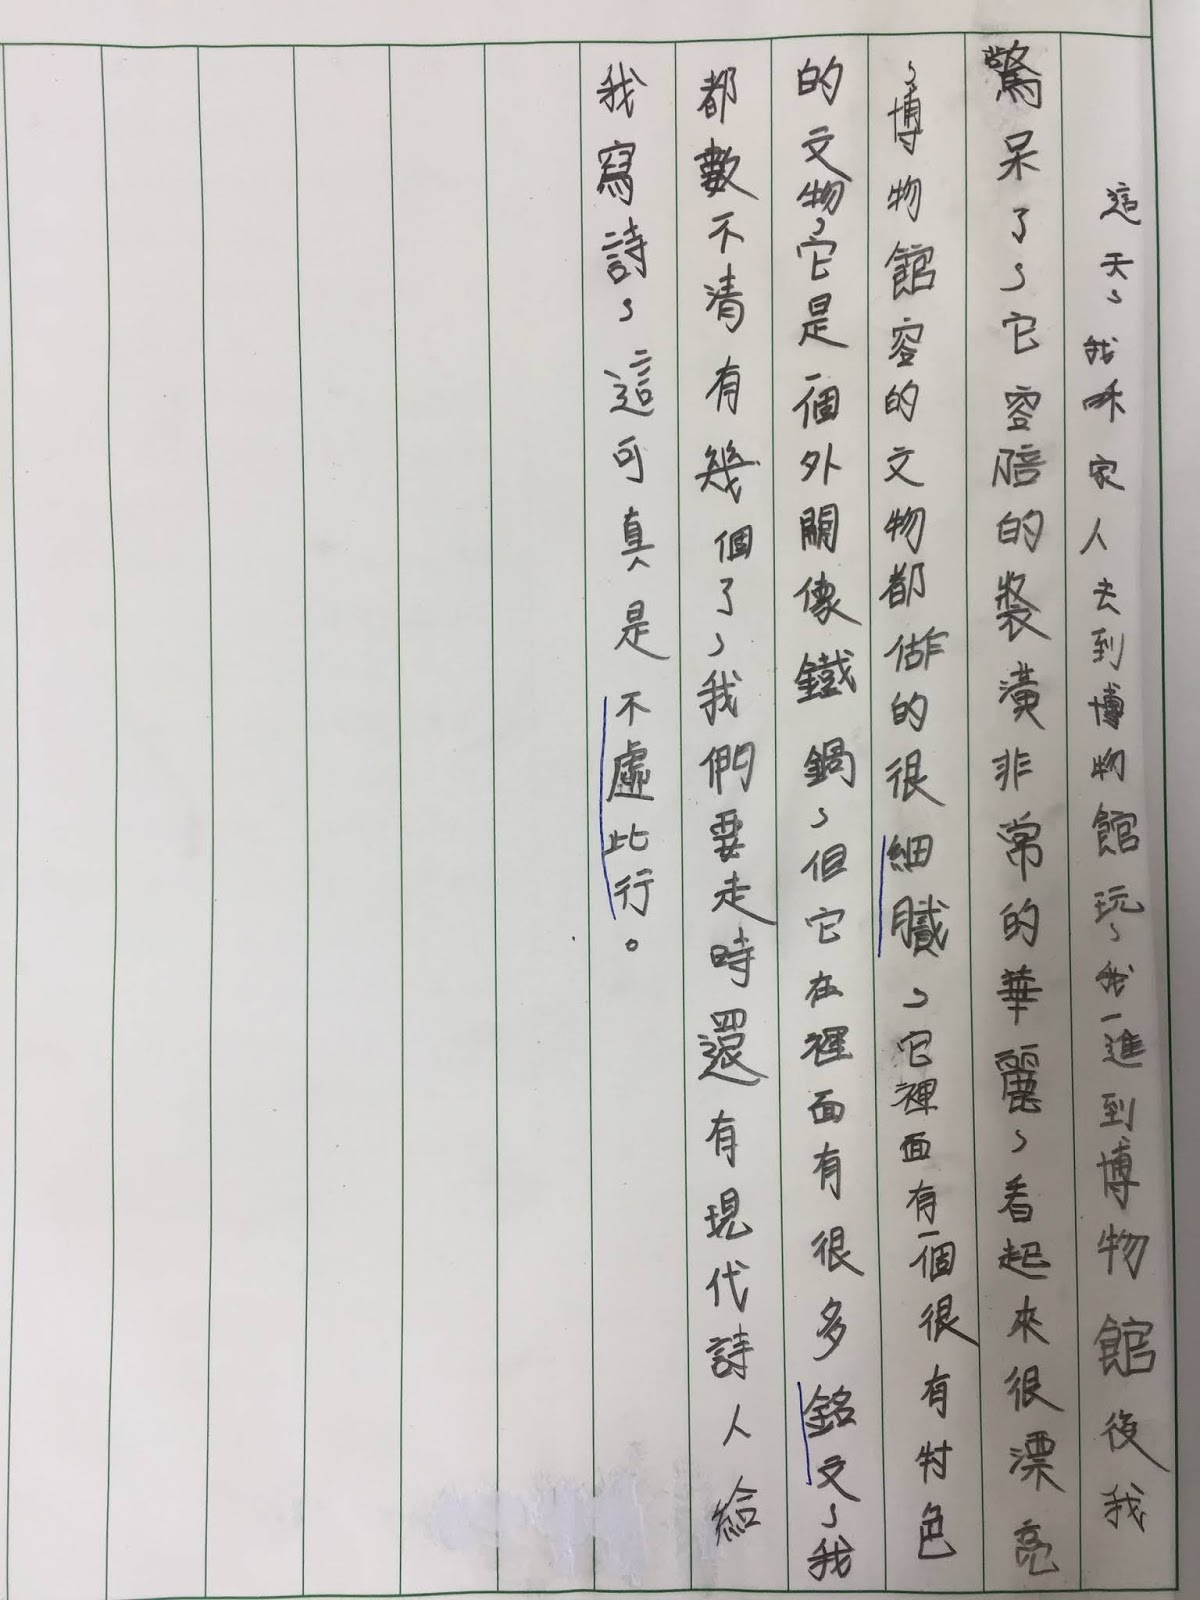 這天，我和家人去到博物館玩，我一進到博物館後我
驚呆了，它容陪的裝潢非常的華麗，看起來很漂亮
，博物館容的文物都做的很細膩，它裡面有一個很有特色
的文物，它是一個外關像鐵鍋，但它在裡面有很多銘文，我
都數不清有幾個了，我們要走時還有現代詩人給
我寫詩，這可真是不虛此行。